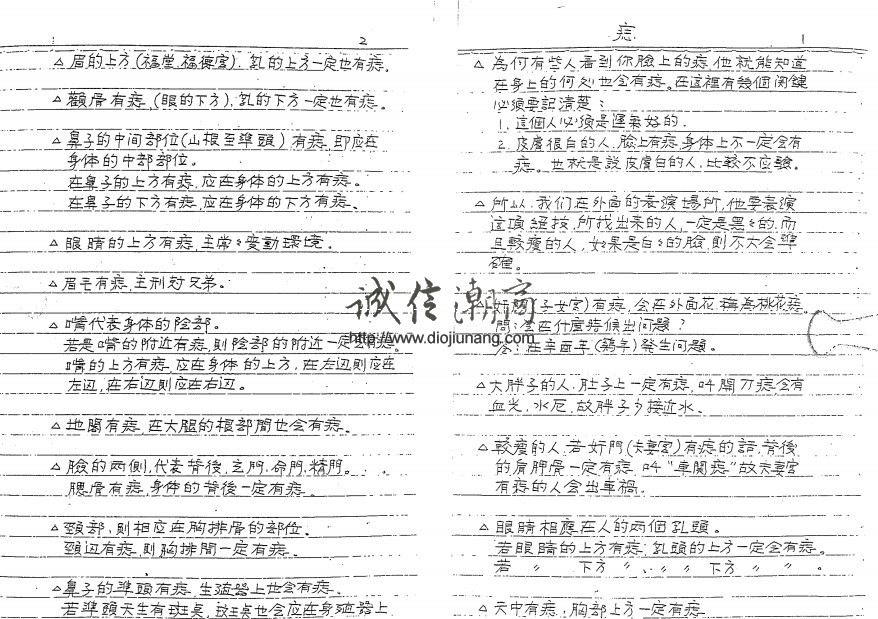 痣 1
△ 為何有些人看到你臉上的痣,他就能知道
在身上的何处也会有痣。在這裡有幾個関鍵
必須要記清楚:
1. 這個人必須是運氣好的.
2. 皮膚很白的人,臉上有痣,身体上不一定会有
痣。也就是說皮膚白的人,比較不应驗。
△ 所以,我们在外面的表演場所,他要表演
這項絕技,所找出來的人,一定是黑々的,而
且較瘦的人,如果是白々的臉,則不大会準
確。
(子女宮)有痣,会在外面花,稱為桃花痣。
問:会在什麼時候出问題?
答:在辛酉年(鷄年)發生问題。
△ 大胖子的人,肚子上一定有痣,叫開刀痣,会有
血光,水厄,故胖子少接近水、
△ 較瘦的人,若奸門(夫妻宮)有痣的話,背後
的肩胛骨一定有痣,叫“車関痣”故夫妻宮
有痣的人会出車禍,
△ 眼睛相應在人的两個乳頭。
若眼睛的上方有痣,乳頭的上方一定会有痣。
若 〃 下方 〃、〃 〃 下方 〃 〃 。
△ 天中有痣,胸部上方一定有痣
2
△ 眉的上方(福堂,福德宮),乳的上方一定也有痣.
△ 顴骨有痣,(眼的下方),乳的下方一定也有痣。
△ 鼻子的中间部位(山根至準頭)有痣,即应在
身体的中部部位。
在鼻子的上方有痣,应在身体的上方有痣。
在鼻子的下方有痣,应在身体的下方有痣、
△ 眼睛的上方有痣,主常々变動環境。
△ 眉毛有痣,主刑尅兄弟。
△ 嘴代表身体的陰部。
若是嘴的附近有痣,則陰部的附近一定会有痣。
嘴的上方有痣,应在身体的上方,在左边則应在
左边,在右边則应在右边。
△ 地閣有痣,在大腿的根部間也会有痣。
△ 臉的两側,代表背後,玄門、命門、精門。
腮骨有痣,身体的背後一定有痣
△ 頸部,則相应在胸排骨的部位。
頸边有痣,則胸排間一定有痣。
△ 鼻子的準頭有痣,生殖器上也会有痣
若準頭天生有斑点,斑点也会应在身殖器上
诚信潮商
http://www.diojiunang.com